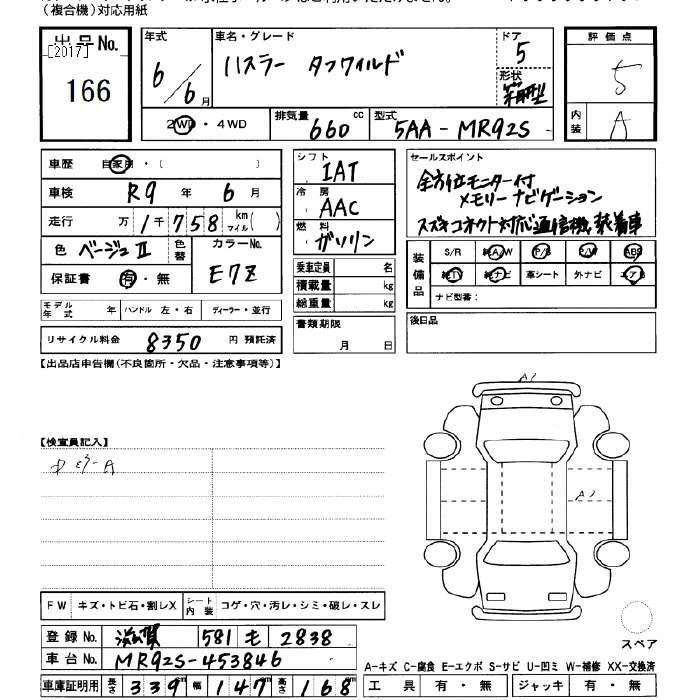 (複合機)対応用紙
出品No.
[2017]
166
年式
6/6月
車名・グレード
ハスラー タフワイルド
ドア
5
形状
評価点
5
内装
A
2WD・4WD
排気量
660 cc
型式
5AA-MR92S
車歴 自家用・( )
車検 R9 年 6 月
走行 万 1千758 km マイル( )
色 ベージュII 色替
カラーNo.
E7Z
保証書 有・無
モデル年式 年 ハンドル 左・右 ディーラー・並行
リサイクル料金 8350 円 預託済
シフト
IAT
冷房
AAC
燃料
ガソリン
乗車定員 名
積載量 kg
総重量 kg
書類期限
月 日
セールスポイント
全方位モニター付
メモリーナビゲーション
スズキコネクト対応通信機装着車
装備品
S/R 純A/W P/S P/W ABS
純TV 純ナビ 革シート 外ナビ エアB
ナビ型番:
後日品
【出品店申告欄(不良箇所・欠品・注意事項等)】
A1
A1
【検査員記入】
FW キズ・トビ石・割レX シート内装 コゲ・穴・汚レ・シミ・破レ・スレ
スペア
登録No. 滋賀 581 モ 2838
車台No. MR92S-453846
A-キズ C-腐食 E-エクボ S-サビ U-凹ミ W-補修 XX-交換済
車庫証明用 長さ 339 cm 幅 147 cm 高さ 168 cm
工具 有・無 ジャッキ 有・無